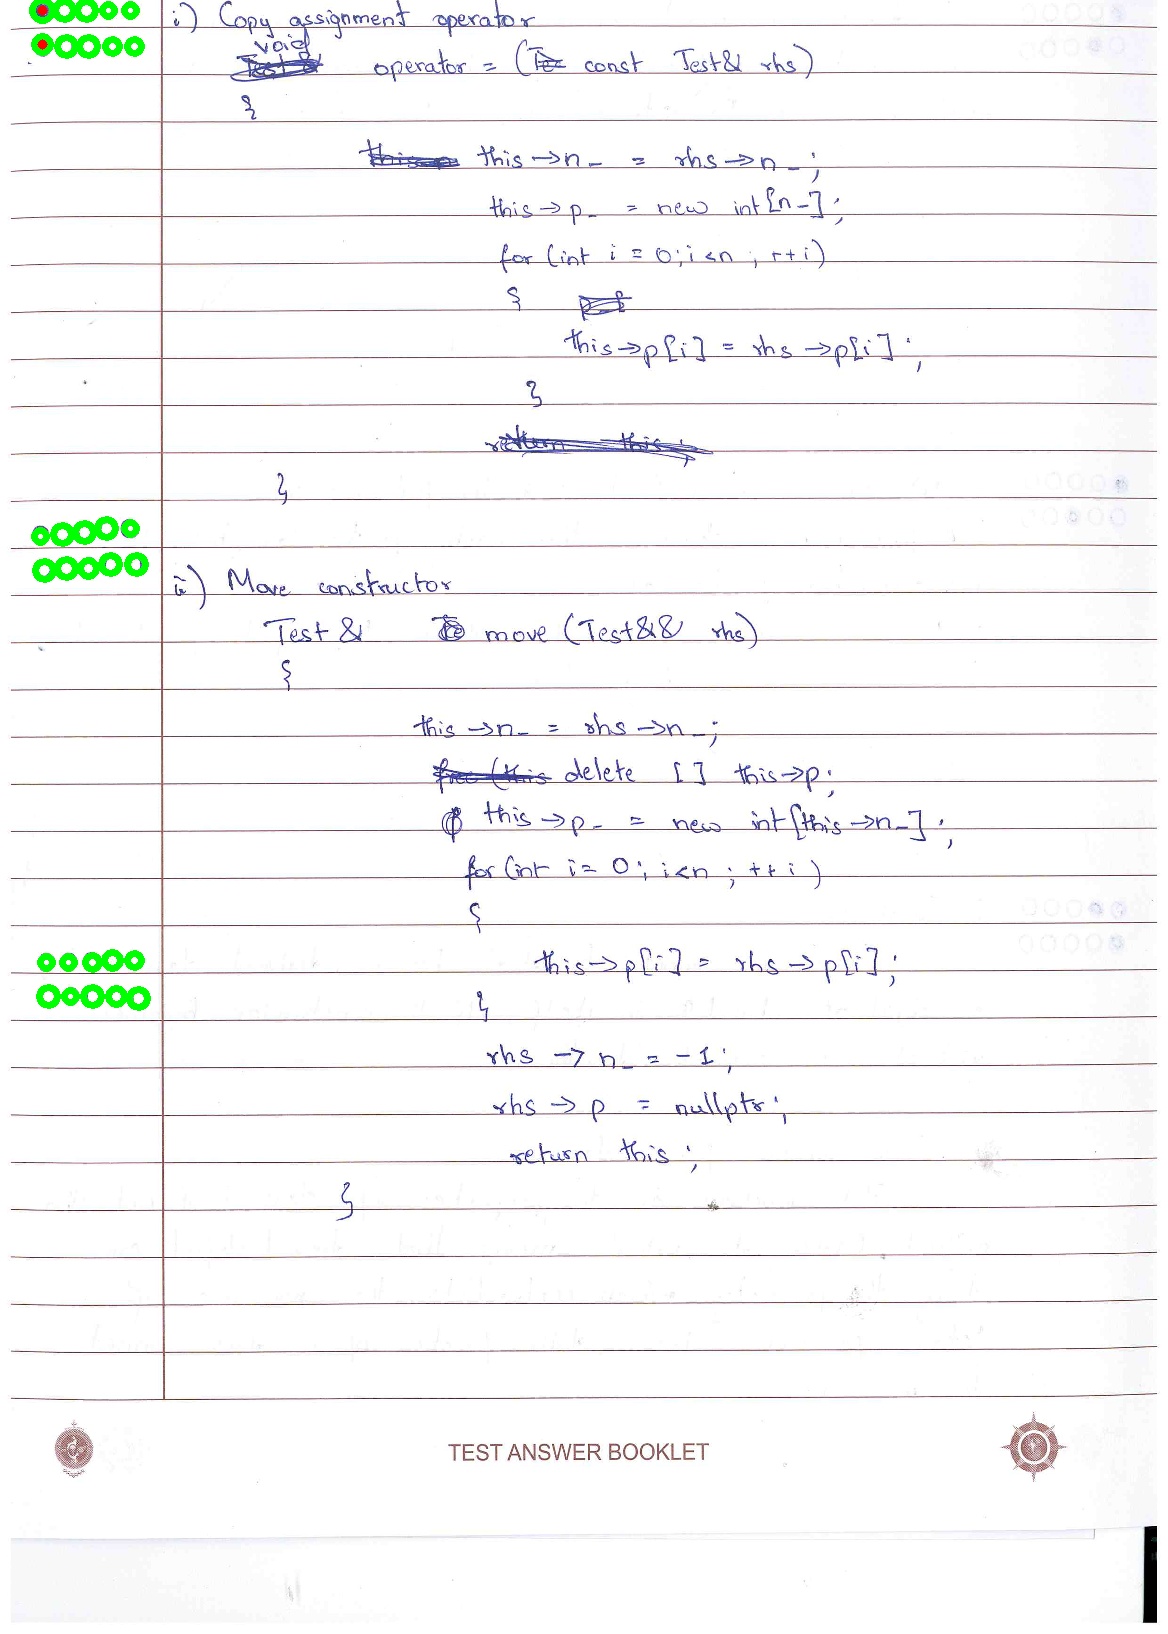 i) Copy assignment operator
void
operator = ( const Test& rhs)
{
this->n_ = rhs->n_;
this->p_ = new int[n_];
for (int i = 0; i<n ; ++i)
{
this->p[i] = rhs->p[i];
}
return this;
}
ii) Move constructor
Test & move (Test&& rhs)
{
this->n_ = rhs->n_;
delete [] this->p;
this->p_ = new int[this->n_];
for (int i = 0; i<n ; ++i)
{
this->p[i] = rhs->p[i];
}
rhs->n_ = -1;
rhs->p = nullptr;
return this;
}
TEST ANSWER BOOKLET